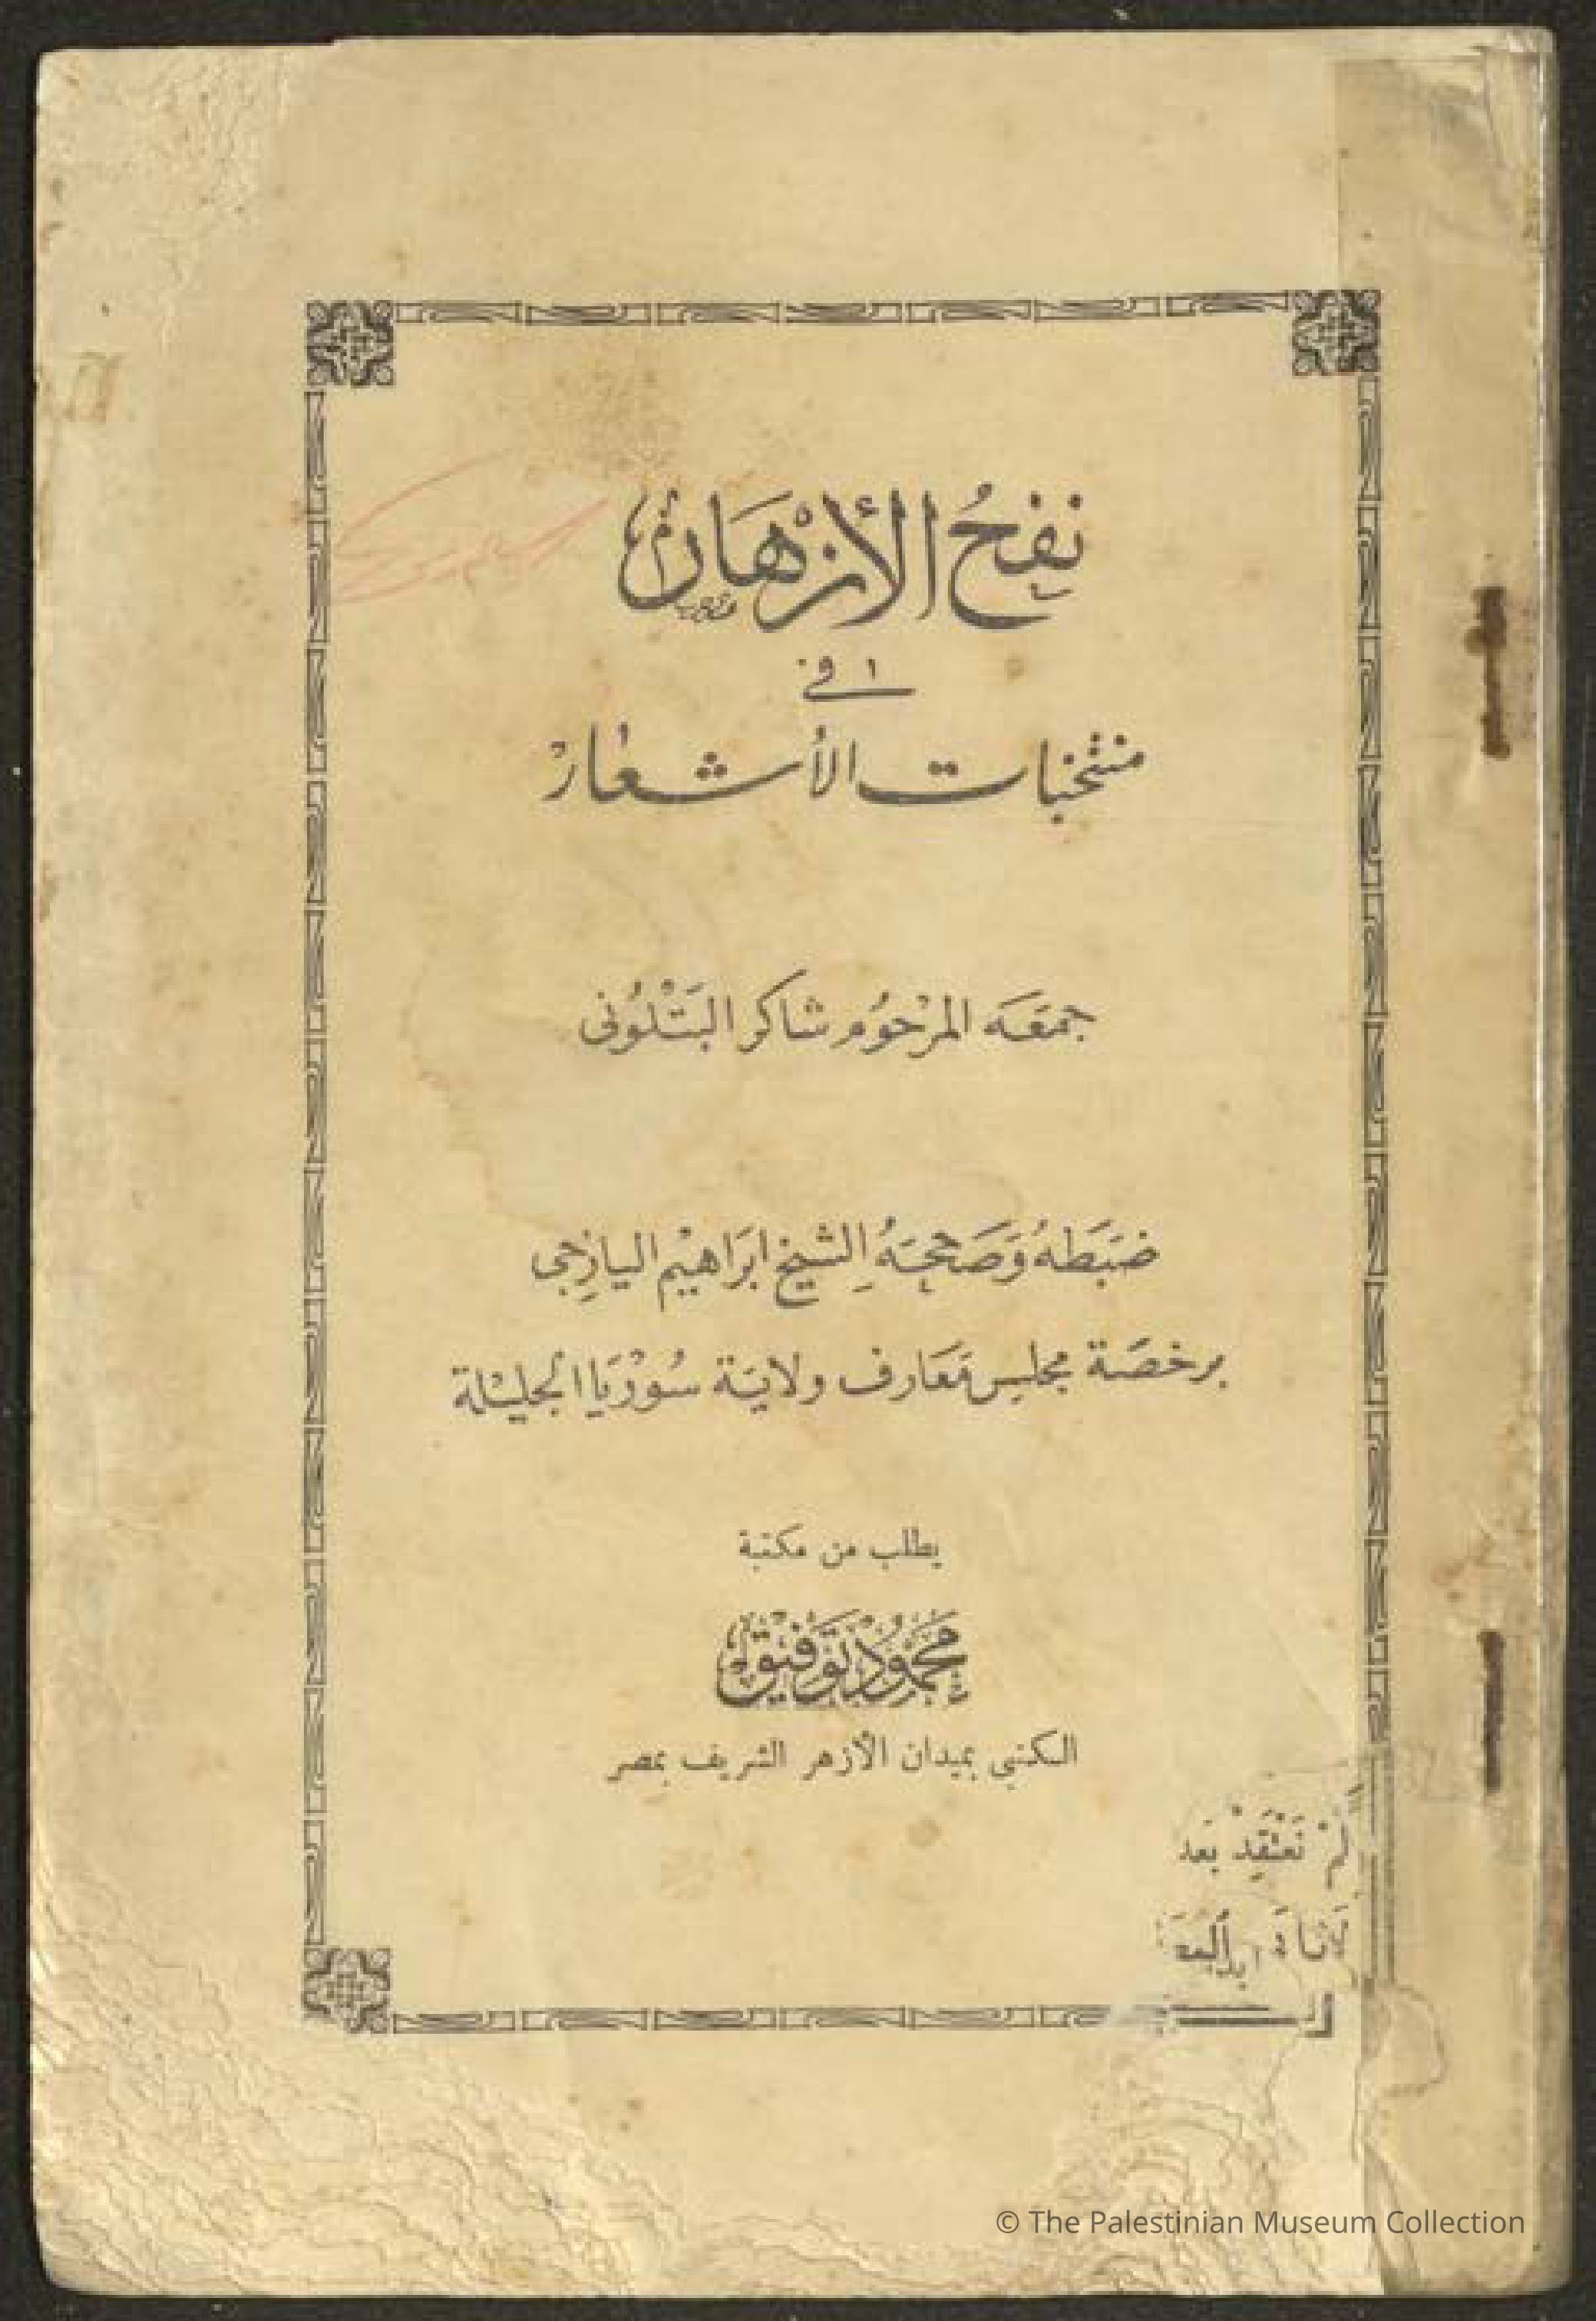 نفح الأزهار
في
منتخبات الأشعار
جمعه المرحوم شاكر البتلوني
ضبطه وصححه الشيخ ابراهيم اليازجي
برخصة مجلس معارف ولاية سوريا الجليلة
يطلب من مكتبة
محمود توفيق
الكتبي بميدان الأزهر الشريف بمصر
بعد
© The Palestinian Museum Collection